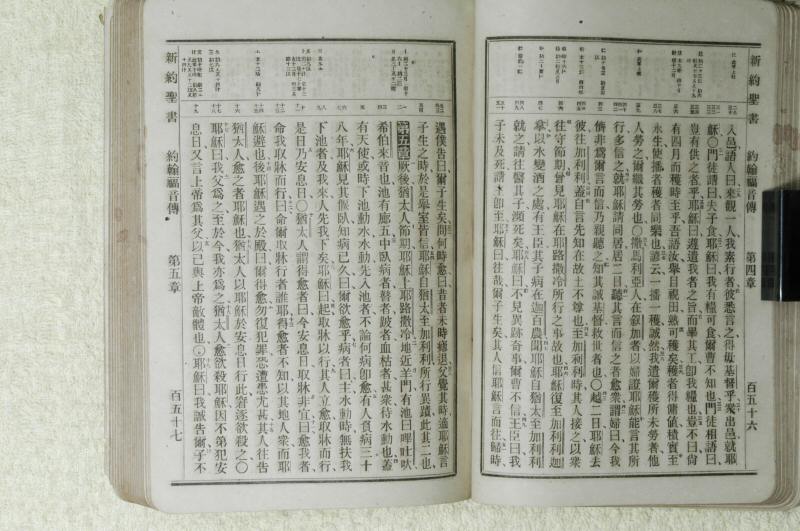 第四章
百五十六
入邑語人曰來觀一人我素行者彼悉言之得毋基督乎衆出邑就耶
穌○門徒請曰夫子食耶穌曰我有糧可食爾曹不知也門徒相語曰
豈有供之者乎耶穌曰遵遣我者之旨而畢其工卽我糧也豈不曰尚
有四月而穫時至乎吾語汝舉目視田熟可穫矣穫者得傭値積實至
永生使播者穫者同樂也諺云一播一穫誠然我遣爾穫所未勞者他
人勞之爾職其勞也○撒馬利亞人在叙加者以婦證耶穌能言其所
行多信之就耶穌請同居居二日聽其言而信之者愈衆謂婦曰今我
儕非爲爾言而信乃親聽之知其誠基督救世者也○越二日耶穌去
彼往加利利蓋自言先知在故土不尊也至加利利時其人接之以衆
往守節期曾見耶穌在耶路撒冷所行之事故也耶穌復至加利利迦
拿以水變酒之處有王臣其子病在迦百農聞耶穌自猶太至加利利
就之請往醫其子瀕死矣耶穌曰不見異跡奇事爾曹不信王臣曰我
子未及死請卽至耶穌曰往哉爾子生矣其人信耶穌言而往歸時
新約聖書
約翰福音傳
遇僕告曰爾子生矣問何時愈曰昔者未時瘧退父覺其時適耶穌言
子生之時於是舉室皆信耶穌自猶太至加利利所行異蹟此其二也
第五章厥後猶太人節期耶穌上耶路撒冷地近羊門有池曰畢士大
希伯來音也池有廊五中臥病者瞽者跛者血枯者甚衆待水動也蓋
有天使或時下池動水水動先入池者不論何病卽愈有人負病三十
八年耶穌見其偃臥知病已久曰爾欲愈乎病者曰主水動時無扶我
下池者及我來人先我下矣耶穌曰起取牀以行其人立愈取牀而行
是日乃安息日○猶太人謂得愈者曰今安息日取牀非宜曰愈我者
命我取牀而行曰命爾取牀行者誰耶得愈者不知以其地人衆而耶
穌避也後耶穌遇之於殿曰爾得愈勿復犯罪恐遭患尤甚其人往告
猶太人愈之者耶穌也猶太人以耶穌於安息日行此窘逐欲殺之○
耶穌曰我父爲之至於今我亦爲之猶太人愈欲殺耶穌因不第犯安
息日又言上帝爲其父以己與上帝敵體也○耶穌曰我誠告爾子不
新約聖書
約翰福音傳
第五章
百五十七